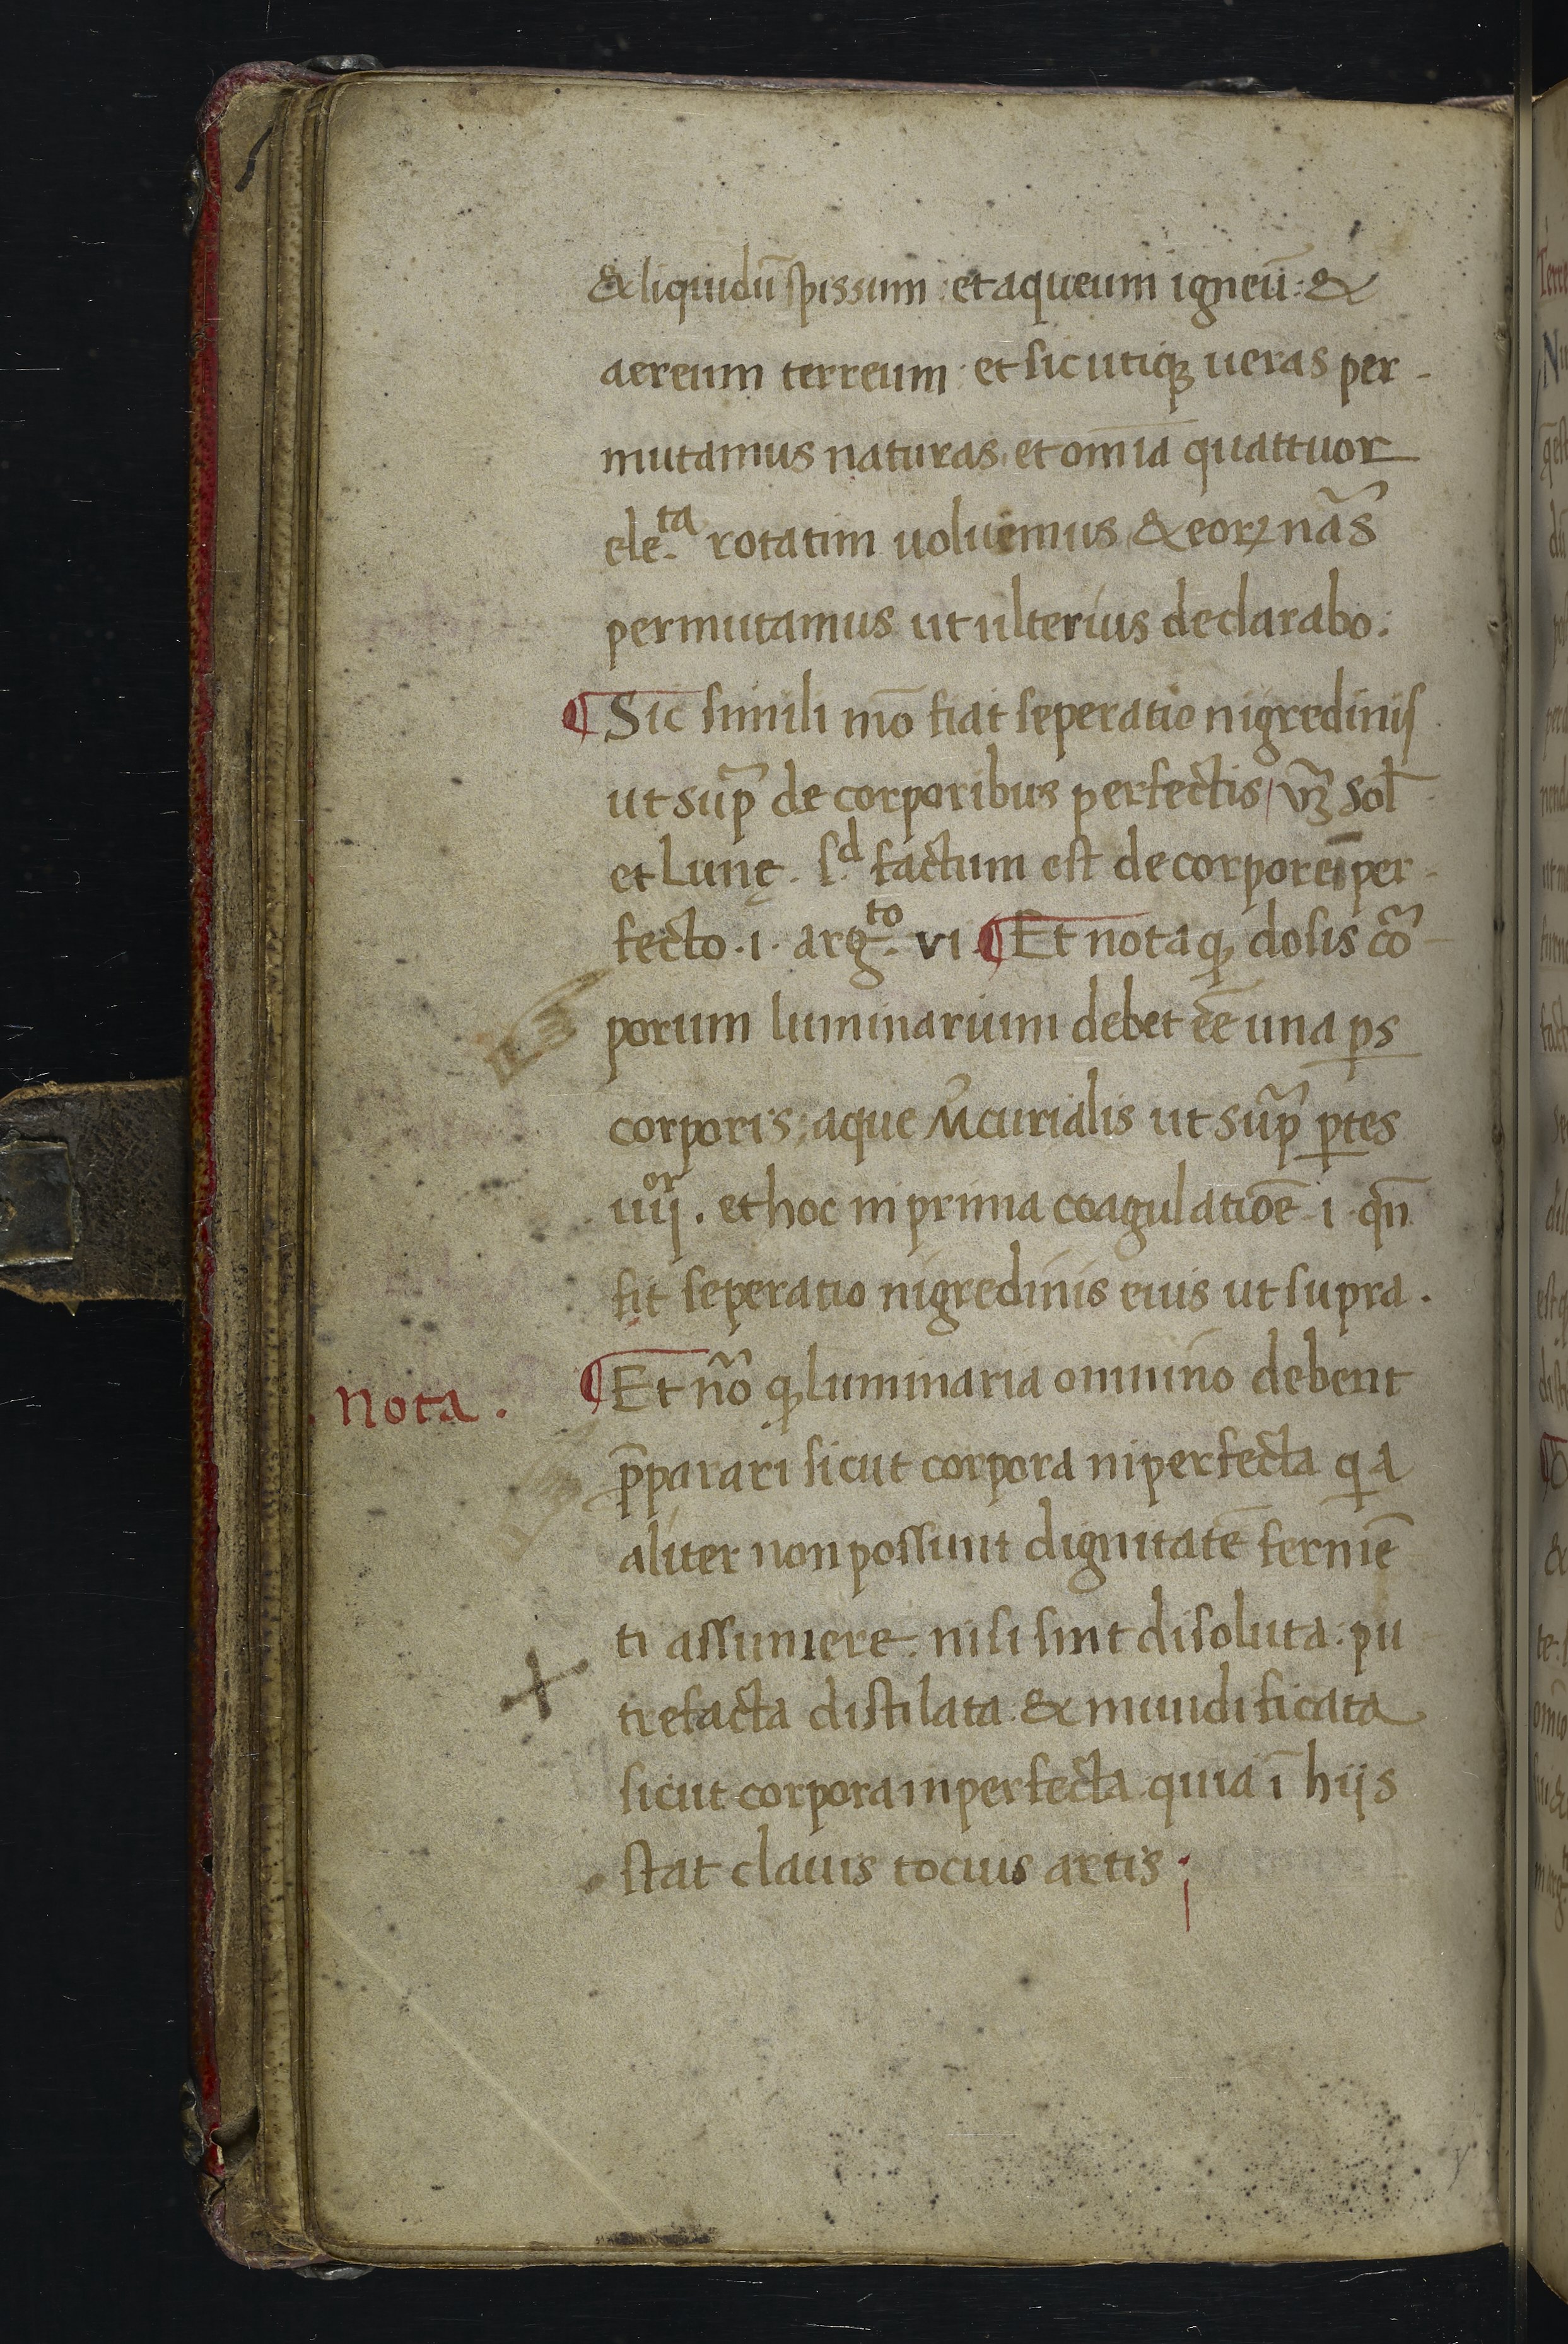 & liquidū spissum et aqueum igneū: &
aereum terreum et sic utiqꝫ ueras per-
mutamus naturas et om̄ia quattuor
ele.ᵗᵃ rotatim uoluemus & eoꝝ nãs
permutamus ut ulterius declarabo:
¶ Sic simili mō fiat seperatio nigredinis
ut sup̃ de corporibus perfectis / vꝫ sol̄
et Lunę. s.ᵈ factum est de corpore īper-
fecto .i. arg.ᵗᵒ vi ¶ Et nota qꝫ dosis cõr-
porum luminarium debet eē una ꝑs
corporis; aque m̃curialis ut sup̃ ꝑtes
iiij.ᵒʳ et hoc in prima coagulatiōe .i. qn̄
fit seperatio nigredinis eius ut supra.
Nota.
¶ Et nõ qꝫ luminaria omnino debent
p̄parari sicut corpora inperfecta qia
aliter non possunt dignitatē fermē
ti assumere. nisi sint disoluta. pu
trefacta distilata & mundificata
sicut corpora inperfecta quia ī hijs
stat clauis tocius artis;